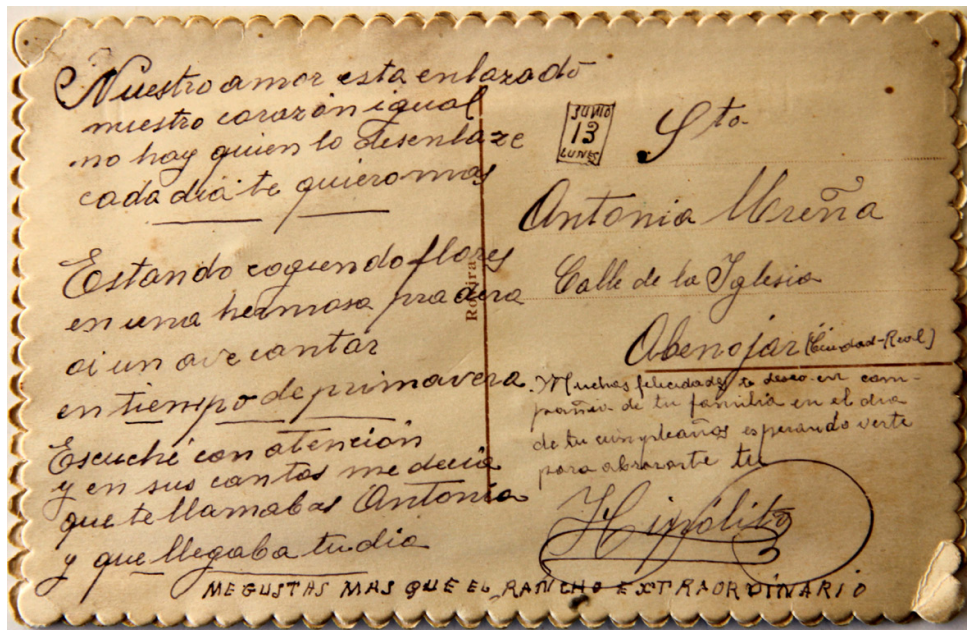 Nuestro amor esta enlazado
nuestro corazón igual
no hay quien lo desenlaze
cada dia te quiero mas
Estando cogiendo flores
en una hermosa pradera
oi un ave cantar
en tiempo de primavera
Escuché con atención
y en sus cantos me decia
que te llamabas Antonia
y que llegaba tu dia
Roxira
JUNIO
13
LUNES
Sta.
Antonia Moreña
Calle de la Iglesia
Abenojar (Ciudad-Real)
Muchas felicidades te deseo en com-
pañia de tu familia en el dia
de tu cumpleaños esperando verte
para abrazarte tu
Hipólito
ME GUSTAS MAS QUE EL RANCHO EXTRAORDINARIO